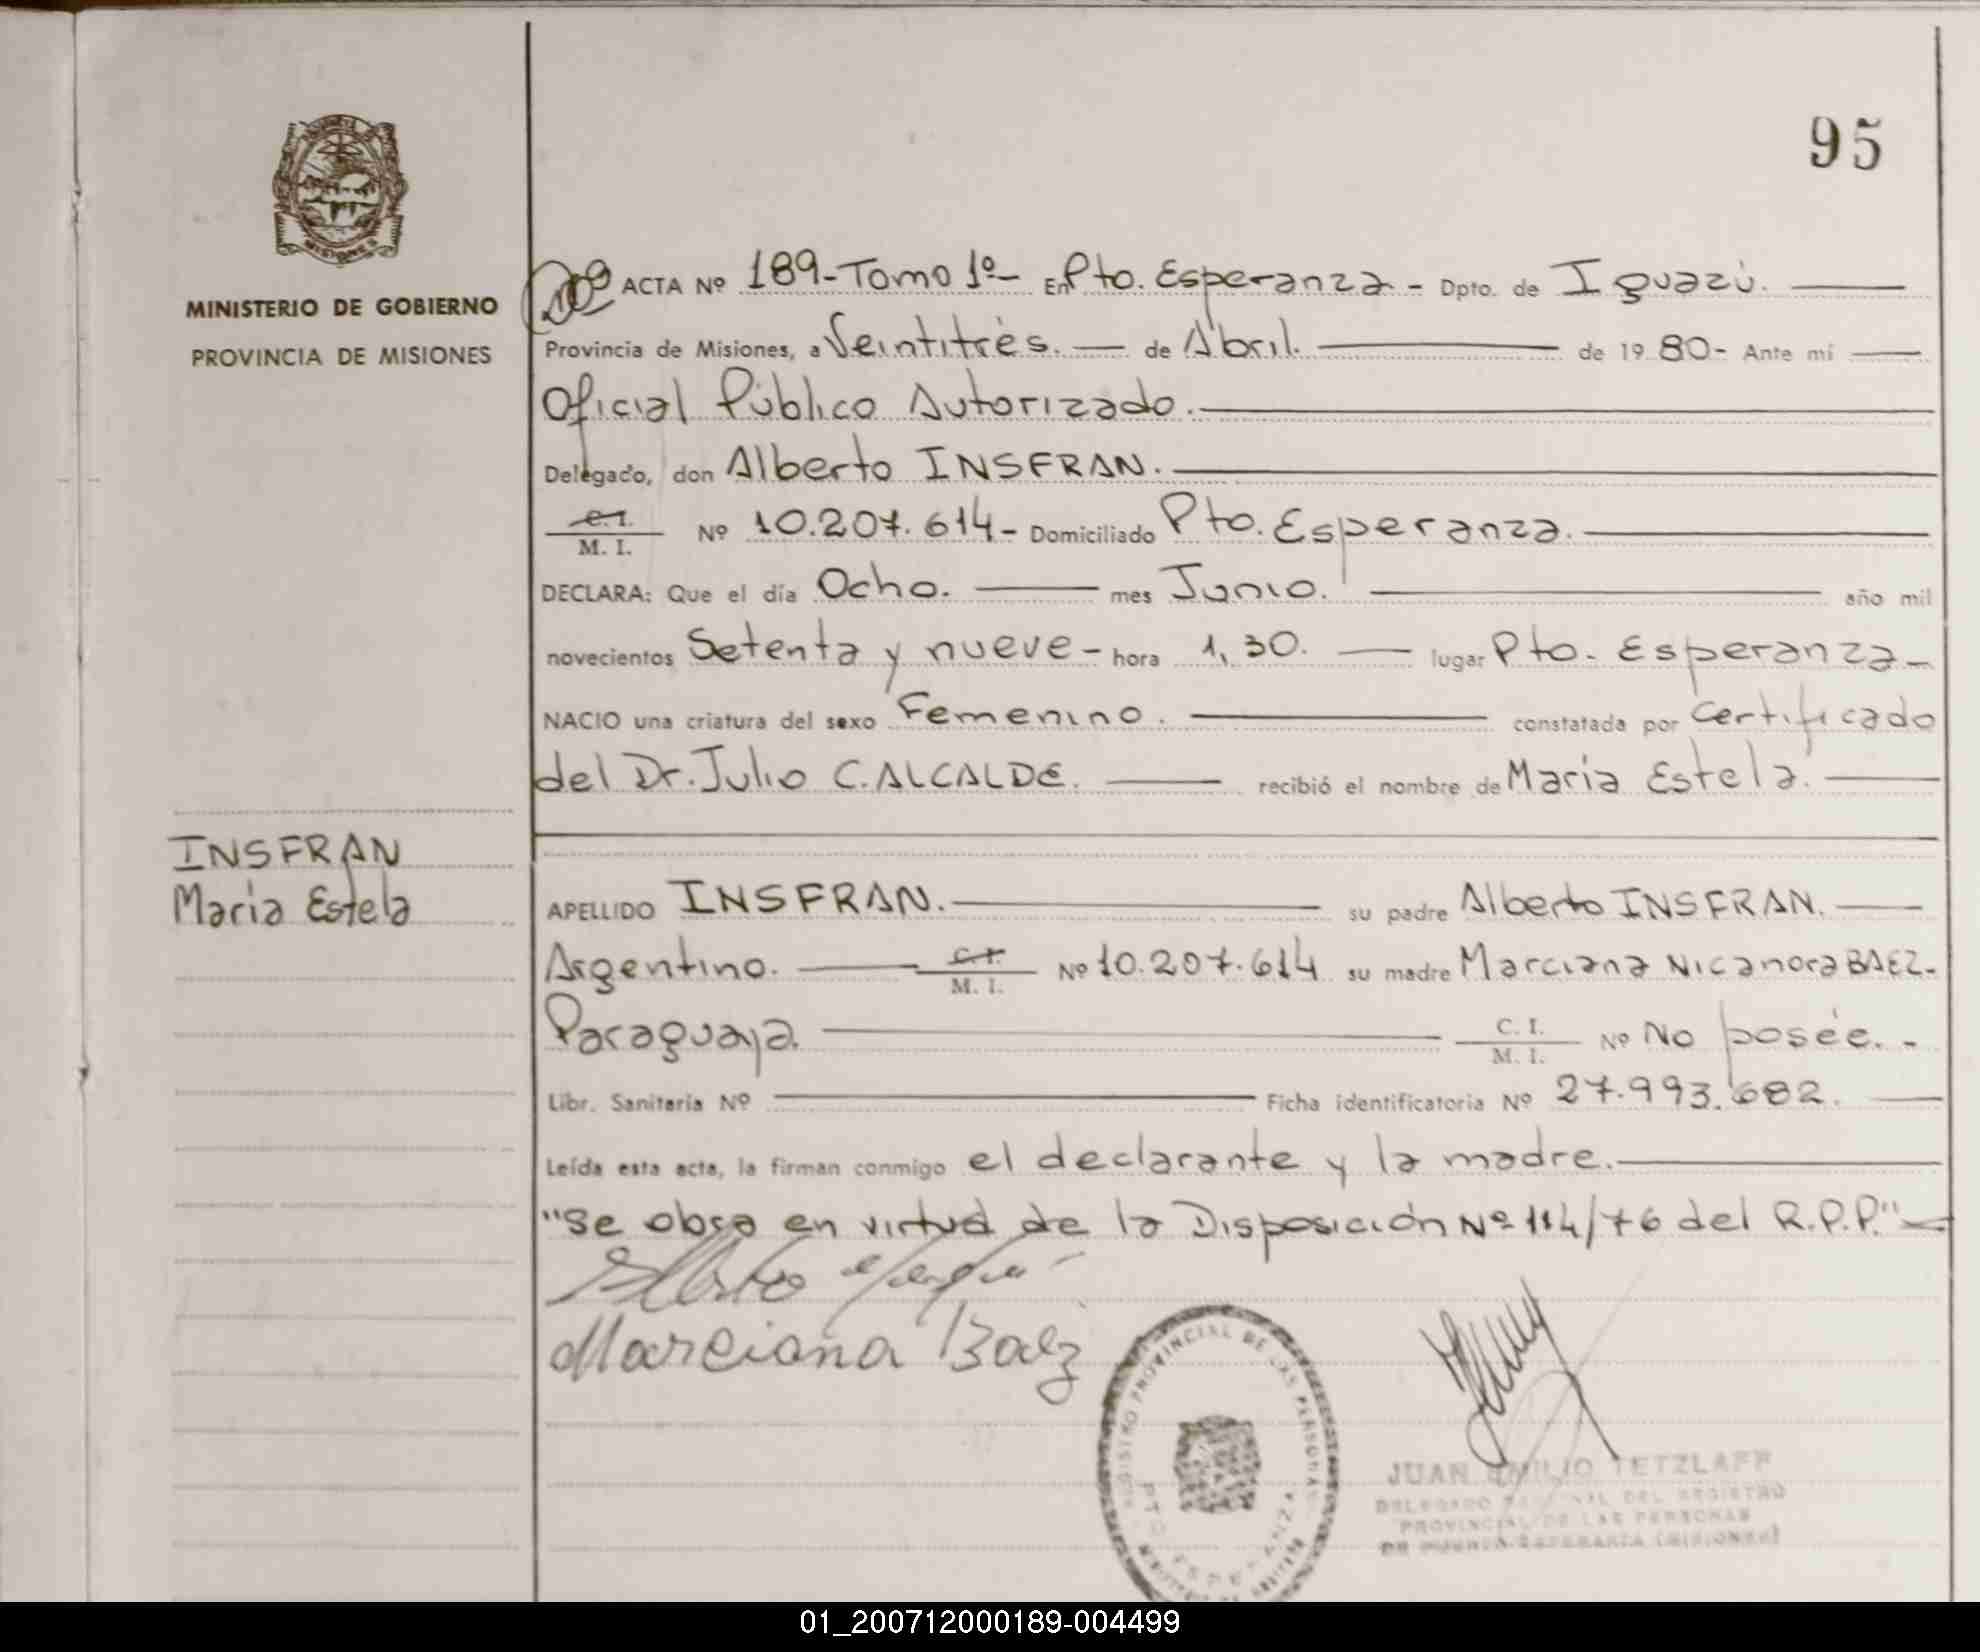 95
MISIONES
MINISTERIO DE GOBIERNO
PROVINCIA DE MISIONES
INSFRAN
Maria Estela
ACTA Nº 189-Tomo 1º- En Pto. Esperanza - Dpto. de Iguazú.
Provincia de Misiones, a Veintitrés. de Abril. de 1980- Ante mí
Oficial Público Autorizado.
Delegado, don Alberto INSFRAN.
C.I.
M. I. Nº 10.207.614- Domiciliado Pto. Esperanza.
DECLARA: Que el día Ocho. mes Junio. año mil
novecientos Setenta y nueve- hora 1,30. lugar Pto. Esperanza-
NACIO una criatura del sexo Femenino. constatada por Certificado
del Dr. Julio C. ALCALDE. recibió el nombre de María Estela.
APELLIDO INSFRAN. su padre Alberto INSFRAN.
Argentino. C.I.
M. I. Nº 10.207.614 su madre Marciana Nicanora BAEZ-
Paraguaya. C. I.
M. I. Nº No posée.-
Libr. Sanitaria Nº Ficha identificatoria Nº 27.993.682.
Leída esta acta, la firman conmigo el declarante y la madre.
"Se obra en virtud de la Disposición Nº 114/76 del R.P.P."-
Marciana Baez
REGISTRO PROVINCIAL DE LAS PERSONAS
PTO ESPERANZA
JUAN EMILIO TETZLAFF
DELEGADO DEL REGISTRO
PROVINCIAL DE LAS PERSONAS
DE PUERTO ESPERANZA (MISIONES)
01_200712000189-004499